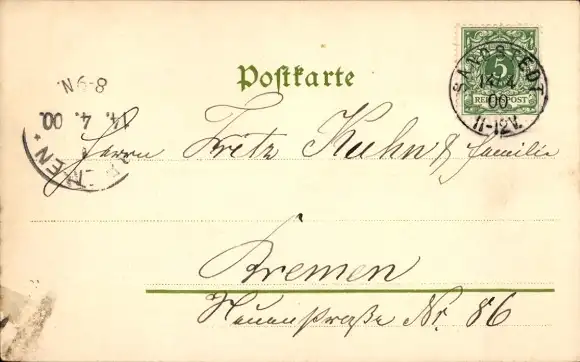 Postkarte
SANGSTEDT
14.4
00
11-12V.
5
REICHSPOST
8-9N.
14. 4. 00.
Herrn Fritz Kuhn & Familie
Bremen
Neuenstraße Nr. 86